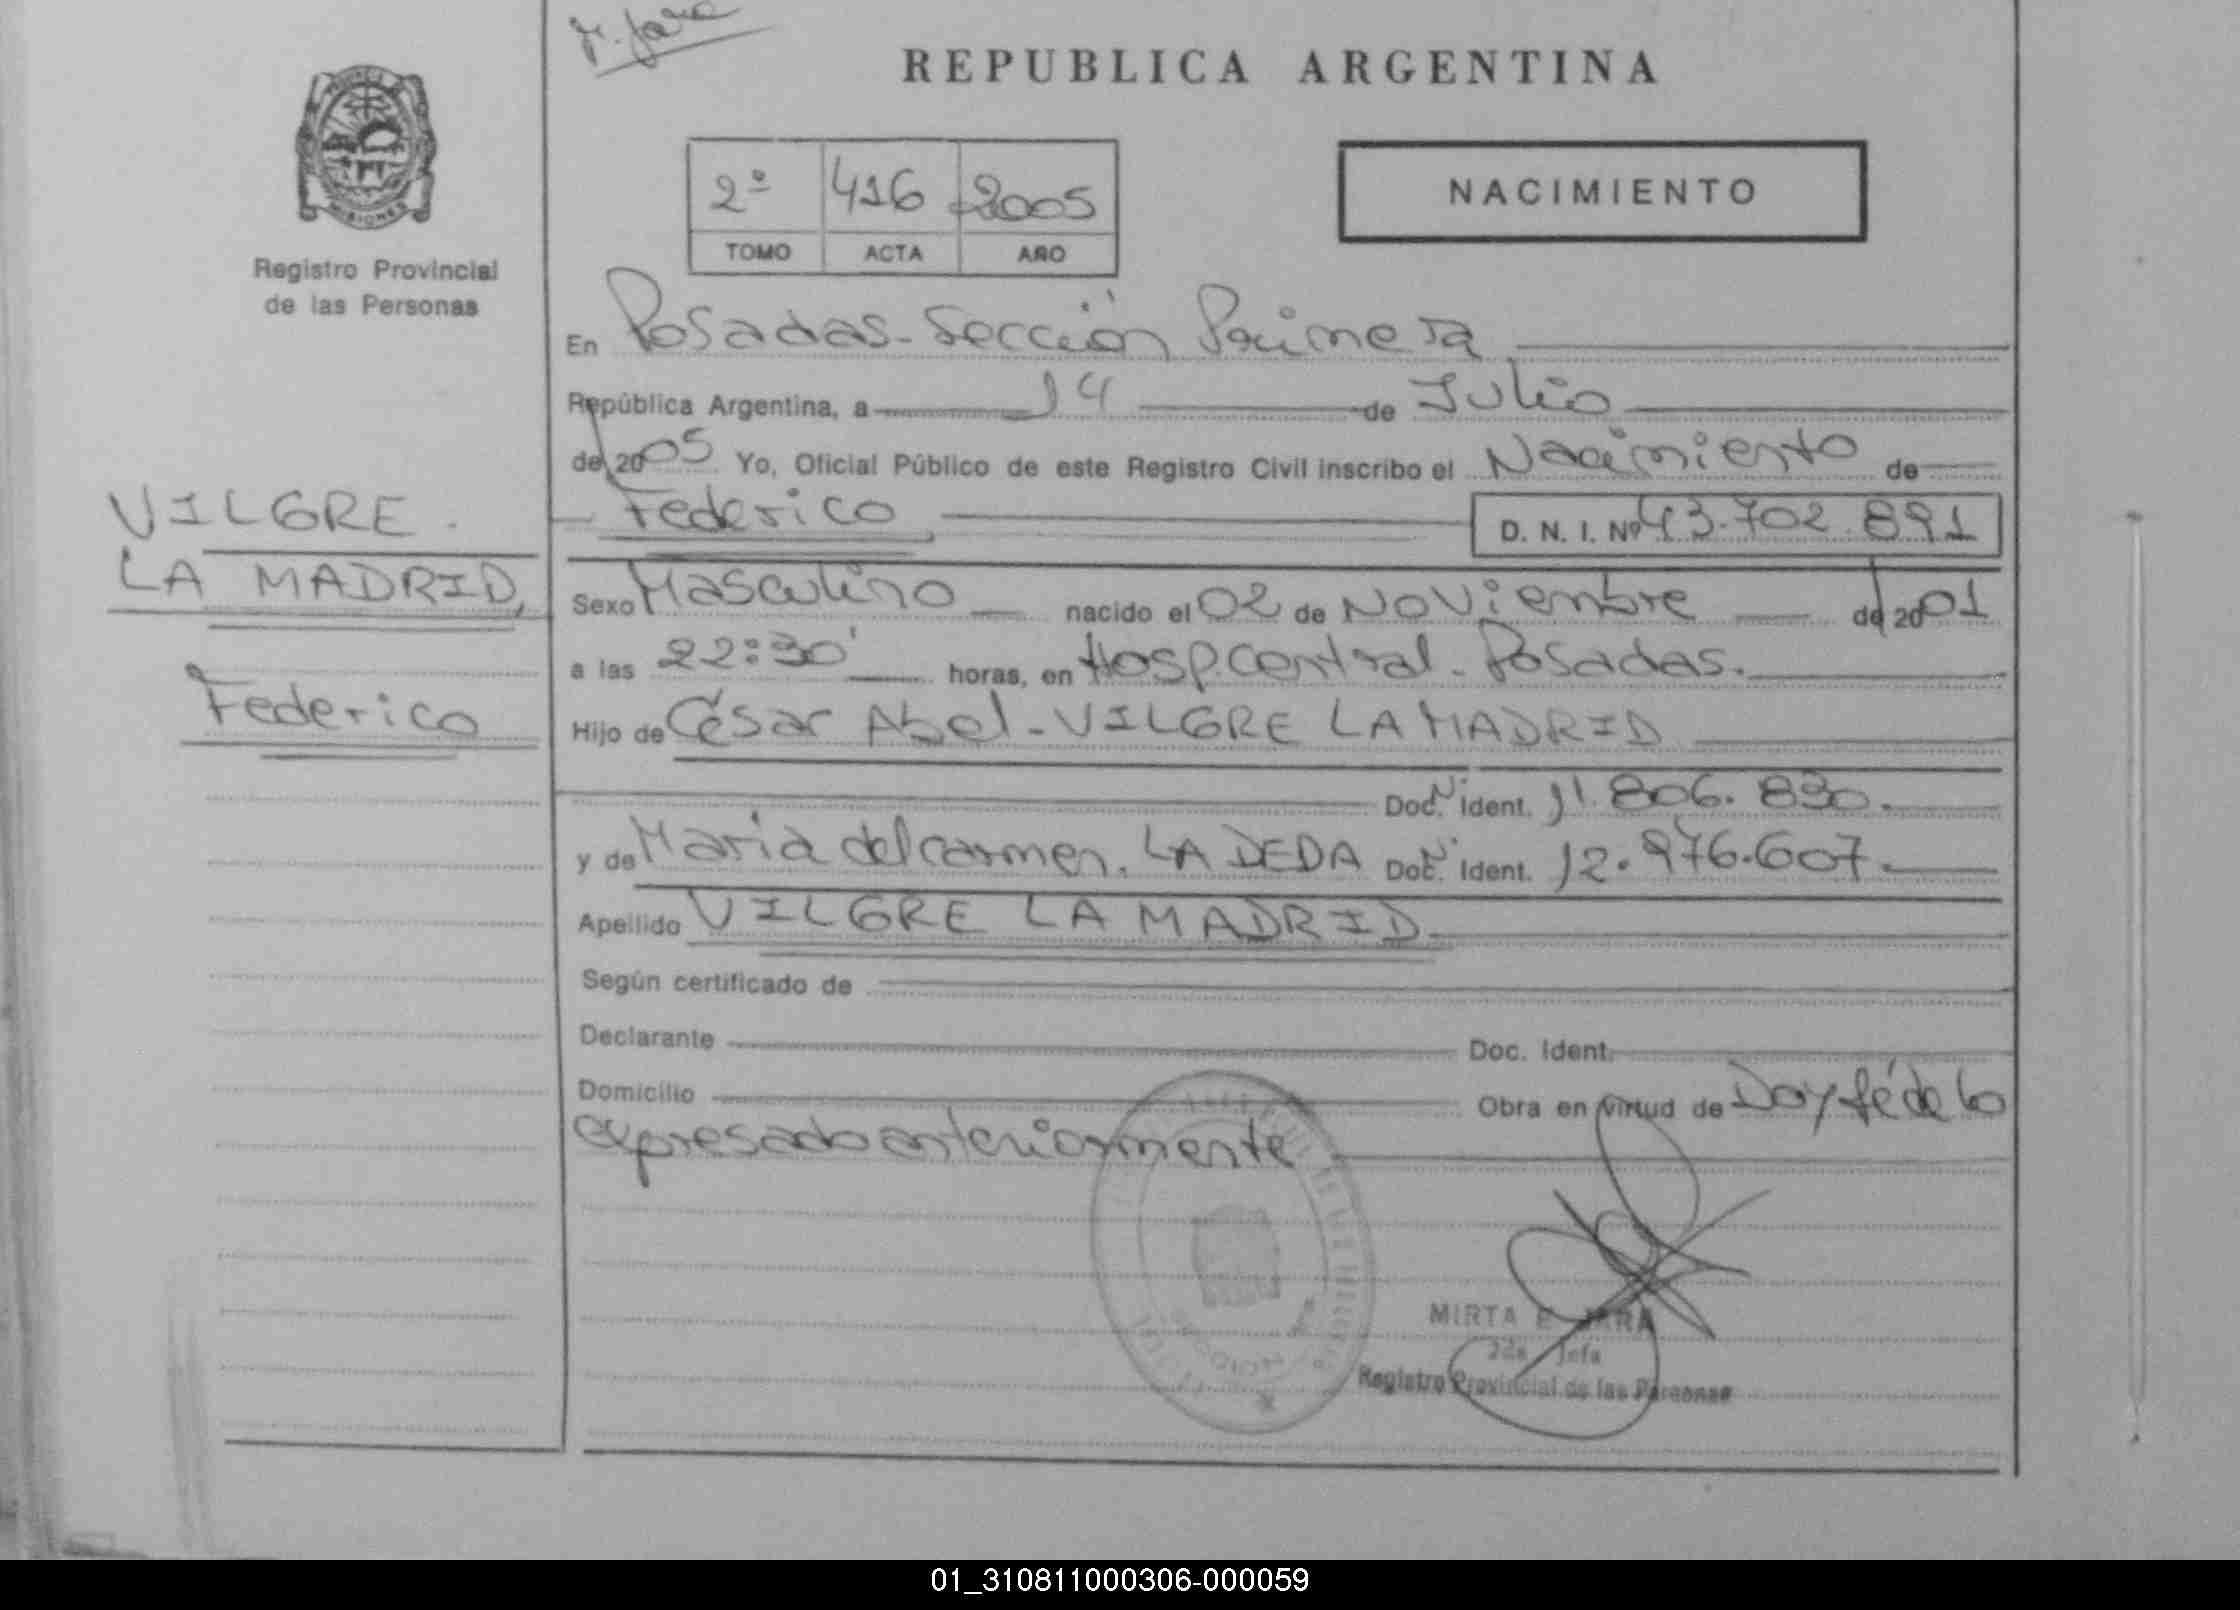 M. Jara
REPUBLICA ARGENTINA
PROVINCIA
MISIONES
Registro Provincial
de las Personas
2º 416 2005
TOMO ACTA AÑO
NACIMIENTO
En Posadas - Sección Primera
República Argentina, a 14 de Julio
de 2005 Yo, Oficial Público de este Registro Civil inscribo el Nacimiento de
Federico D. N. I. Nº 43.702.891
VILGRE
LA MADRID,
Federico
Sexo Masculino nacido el 02 de Noviembre de 2001
a las 22:30' horas, en Hosp. Central - Posadas.
Hijo de César Abel - VILGRE LA MADRID
Doc. Ident. 11.806.830.
y de Maria del carmen. LA DEDA Doc. Ident. 12.976.607.
Apellido VILGRE LA MADRID
Según certificado de
Declarante Doc. Ident.
Domicilio Obra en virtud de Doy fé de lo
expresado anteriormente
MIRTA E. JARA
2da Jefa
Registro Provincial de las Personas
01_310811000306-000059